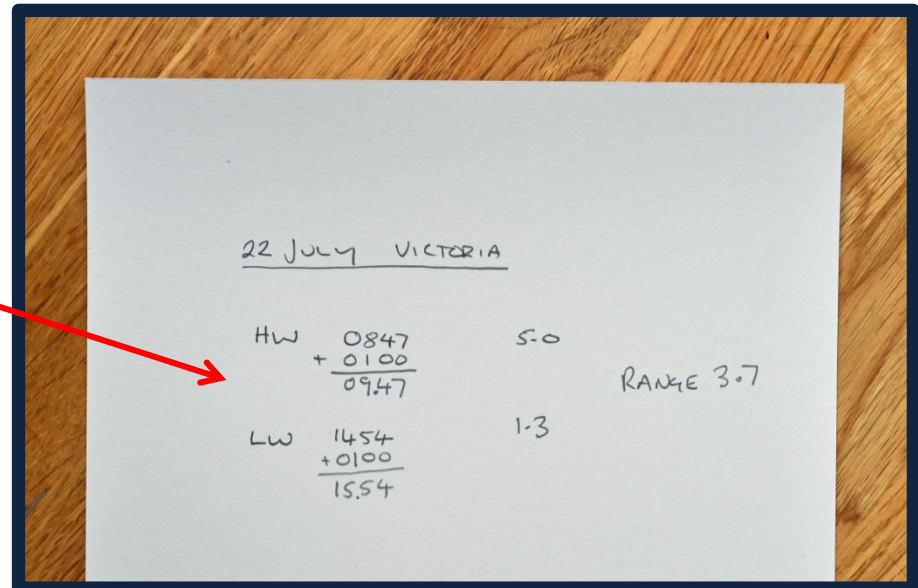 22 JULY VICTORIA
HW 0847 5.0
+ 0100
09.47 RANGE 3.7
LW 1454 1.3
+0100
15.54